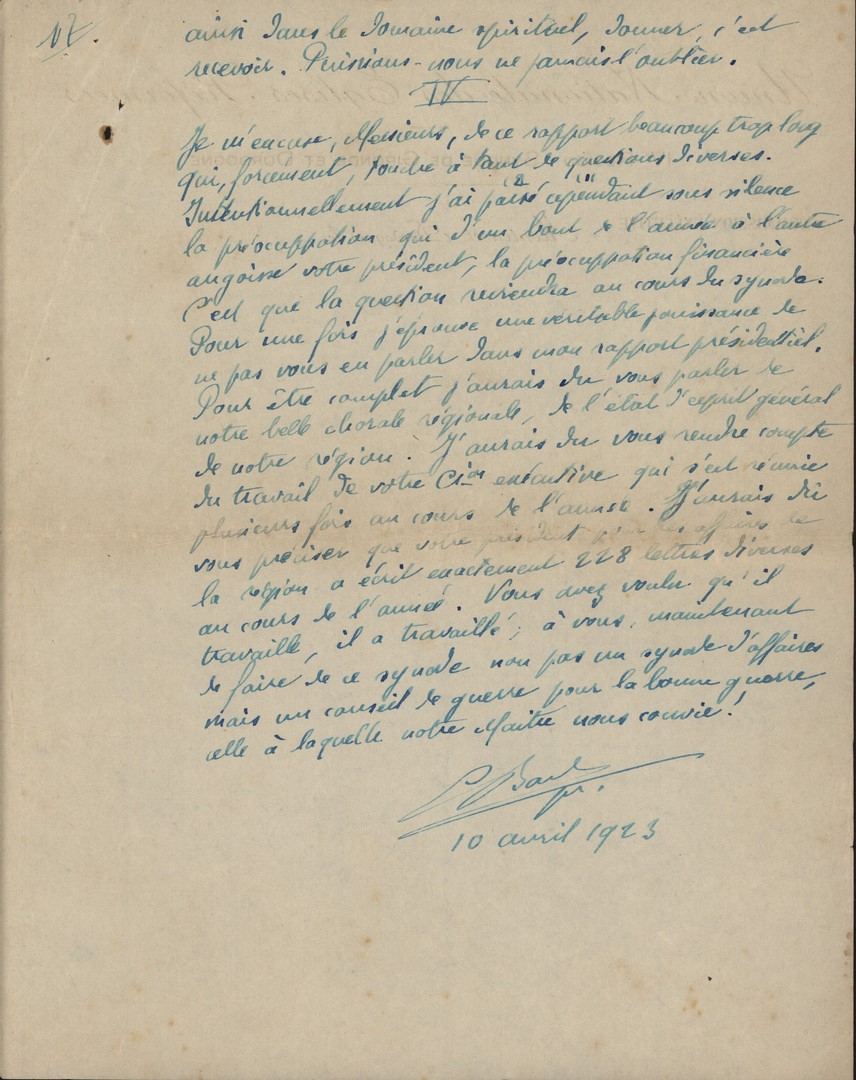 17.
ainsi dans le domaine spirituel, donner, c'est
recevoir. Puissions-nous ne jamais l'oublier.
IV
Je m'excuse, Messieurs, de ce rapport beaucoup trop long
qui, forcement, touche à tant de questions diverses.
Intentionnellement j'ai passé cependant sous silence
la préoccupation qui d'un bout de l'année à l'autre
angoisse votre président, la préoccupation financière
C'est que la question reviendra au cours du synode.
Pour une fois j'éprouve une véritable jouissance de
ne pas vous en parler dans mon rapport présidentiel.
Pour être complet j'aurais du vous parler de
notre belle chorale régionale, de l'état d'esprit général
de notre région. J'aurais du vous rendre compte
du travail de votre Cion exécutive qui s'est réunie
plusieurs fois au cours de l'année. J'aurais du
vous préciser que votre président pour les affaires de
la région a écrit exactement 228 lettres diverses
au cours de l'année. Vous avez voulu qu'il
travaille, il a travaillé ; à vous, maintenant
de faire de ce synode non pas un synode d'affaires
mais un conseil de guerre pour la bonne guerre,
celle à laquelle notre Maître nous convie !
pr.
10 avril 1923